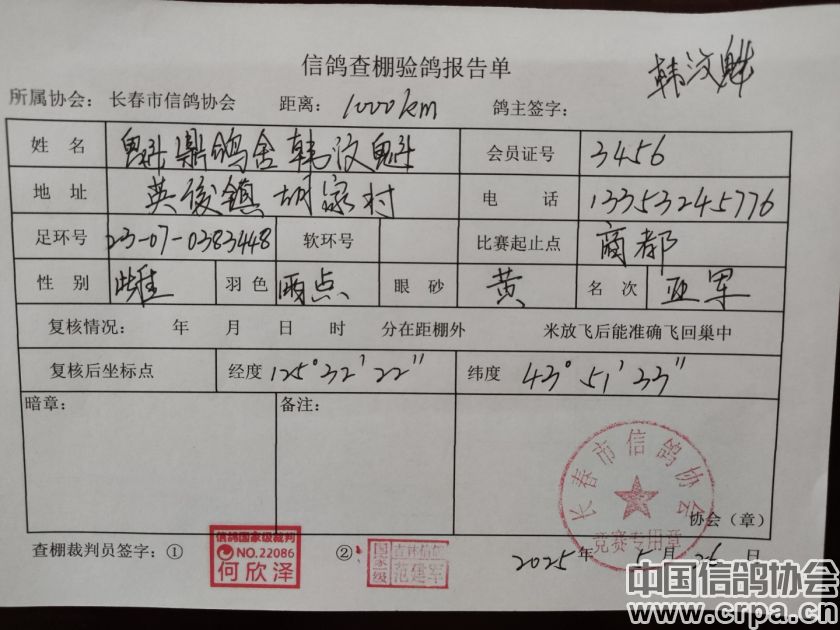 信鸽查棚验鸽报告单
韩汶魁
所属协会：长春市信鸽协会 距离：1000km 鸽主签字：
姓 名 魁鼎鸽舍 韩汶魁 会员证号 3456
地 址 英俊镇 胡家村 电 话 13353245776
足环号 23-07-0383448 软环号 比赛起止点 商都
性 别 雌 羽色 雨点 眼砂 黄 名次 亚军
复核情况： 年 月 日 时 分在距棚外 米放飞后能准确飞回巢中
复核后坐标点 经度 125°32′22″ 纬度 43°51′33″
暗章： 备注：
长春市信鸽协会
竞赛专用章
协会（章）
查棚裁判员签字：① 信鸽国家级裁判 NO.22086 何欣泽 ② 国家一级 范建军 2025年5月26日
中国信鸽协会
www.crpa.cn